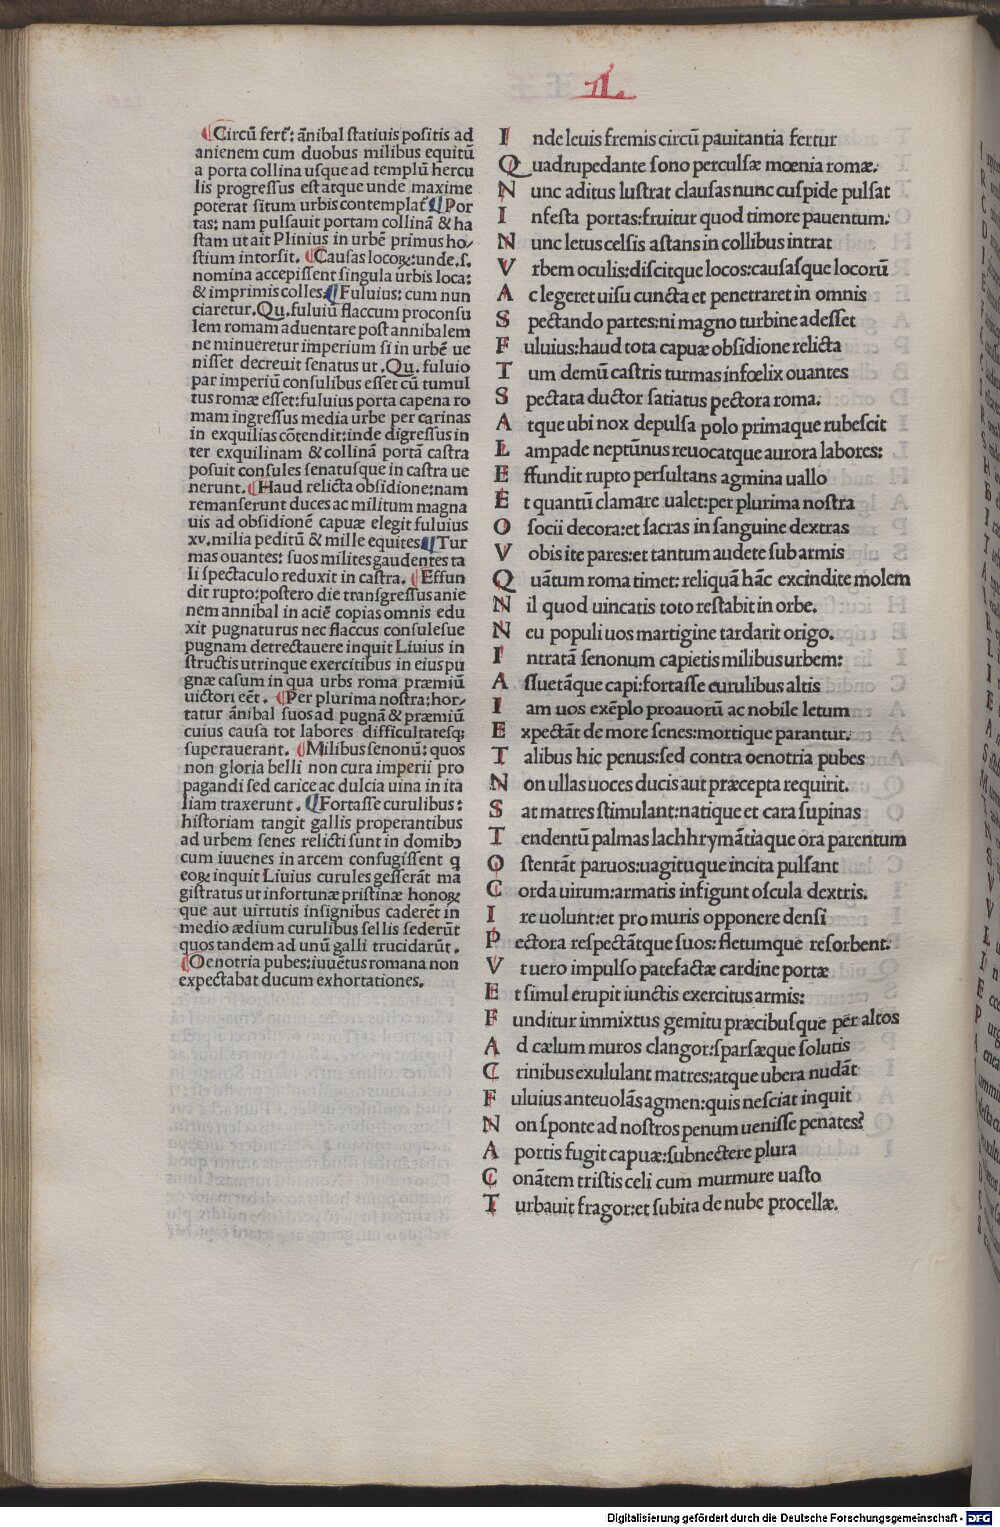 L
¶Circũ fert᷑: ãnibal ſtatiuis poſitis ad
anienem cum duobus milibus equitũ
a porta collina uſque ad templũ hercu
lis progreſſus eſt atque unde maxime
poterat ſitum urbis contemplat᷑ ¶Por
tas: nam pulſauit portam collinã & ha
ſtam ut ait Plinius in urbẽ primus ho/
ſtium intorſit. ¶Cauſas locoꝝ: unde. ſ.
nomina accepiſſent ſingula urbis loca:
& imprimis colles. ¶Fuluius: cum nun
ciaretur. Qu. fuluiũ flaccum proconſu
lem romam aduentare poſt annibalem
ne minueretur imperium ſi in urbẽ ue
niſſet decreuit ſenatus ut. Qu. fuluio
par imperiũ conſulibus eſſet cũ tumul
tus romæ eſſet: fuluius porta capena ro
mam ingreſſus media urbe per carinas
in exquilias cõtendit: inde digreſſus in
ter exquilinam & collinã portã caſtra
poſuit conſules ſenatuſque in caſtra ue
nerunt. ¶Haud relicta obſidione: nam
remanſerunt duces ac militum magna
uis ad obſidionẽ capuæ elegit fuluius
xv. milia peditũ & mille equites ¶Tur
mas ouantes: ſuos milites gaudentes ta
li ſpectaculo reduxit in caſtra. ¶Effun
dit rupto: poſtero die tranſgreſſus anie
nem annibal in aciẽ copias omnis edu
xit pugnaturus nec flaccus conſuleſue
pugnam detrectauere inquit Liuius in
ſtructis utrinque exercitibus in eius pu
gnæ caſum in qua urbs roma præmiũ
uictori eẽt. ¶Per plurima noſtra: hor/
tatur ãnibal ſuos ad pugnã & præmiũ
cuius cauſa tot labores difficultateſq;
ſuperauerant. ¶Milibus ſenonũ: quos
non gloria belli non cura imperii pro
pagandi ſed carice ac dulcia uina in ita
liam traxerunt. ¶Fortaſſe curulibus:
hiſtoriam tangit gallis properantibus
ad urbem ſenes relicti ſunt in domibꝰ
cum iuuenes in arcem confugiſſent q
eoꝝ inquit Liuius curules geſſerãt ma
giſtratus ut in fortunæ priſtinæ honoꝝ
que aut uirtutis inſignibus caderẽt in
medio ædium curulibus ſellis ſederũt
quos tandem ad unũ galli trucidarũt.
¶Oenotria pubes: iuuẽtus romana non
expectabat ducum exhortationes.
I nde leuis fremis circũ pauitantia fertur
Q uadrupedante ſono perculſæ mœnia romæ.
N unc aditus luſtrat clauſas nunc cuſpide pulſat
I nfeſta portas: fruitur quod timore pauentum.
N unc letus celſis aſtans in collibus intrat
V rbem oculis: diſcitque locos: cauſaſque locorũ
A c legeret uiſu cuncta et penetraret in omnis
S pectando partes: ni magno turbine adeſſet
F uluius: haud tota capuæ obſidione relicta
T um demũ caſtris turmas infœlix ouantes
S pectata ductor ſatiatus pectora roma.
A tque ubi nox depulſa polo primaque rubeſcit
L ampade neptũnus reuocatque aurora labores:
E ffundit rupto perſultans agmina uallo
E t quantũ clamare ualet: per plurima noſtra
O ſocii decora: et ſacras in ſanguine dextras
V obis ite pares: et tantum audete ſub armis
Q uãtum roma timet: reliquã hãc excindite molem
N il quod uincatis toto reſtabit in orbe.
N eu populi uos martigine tardarit origo.
I ntratã ſenonum capietis milibus urbem:
A ſſuetãque capi: fortaſſe curulibus altis
I am uos exẽplo proauorũ ac nobile letum
E xpectãt de more ſenes: mortique parantur.
T alibus hic penus: ſed contra oenotria pubes
N on ullas uoces ducis aut præcepta requirit.
S at matres ſtimulant: natique et cara ſupinas
T endentũ palmas lachhrymãtiaque ora parentum
O ſtentãt paruos: uagituque incita pulſant
C orda uirum: armatis infigunt oſcula dextris.
I re uolunt: et pro muris opponere denſi
P ectora reſpectãtque ſuos: fletumque reſorbent.
V t uero impulſo patefactæ cardine portæ
E t ſimul erupit iunctis exercitus armis:
F unditur immixtus gemitu præcibuſque per altos
A d cælum muros clangor: ſparſæque ſolutis
C rinibus exululant matres: atque ubera nudãt
F uluius anteuolãs agmen: quis neſciat inquit
N on ſponte ad noſtros penum ueniſſe penates?
A portis fugit capuæ: ſubnectere plura
C onãtem triſtis celi cum murmure uaſto
T urbauit fragor: et ſubita de nube procellæ.
Digitalisierung gefördert durch die Deutsche Forschungsgemeinschaft - DFG